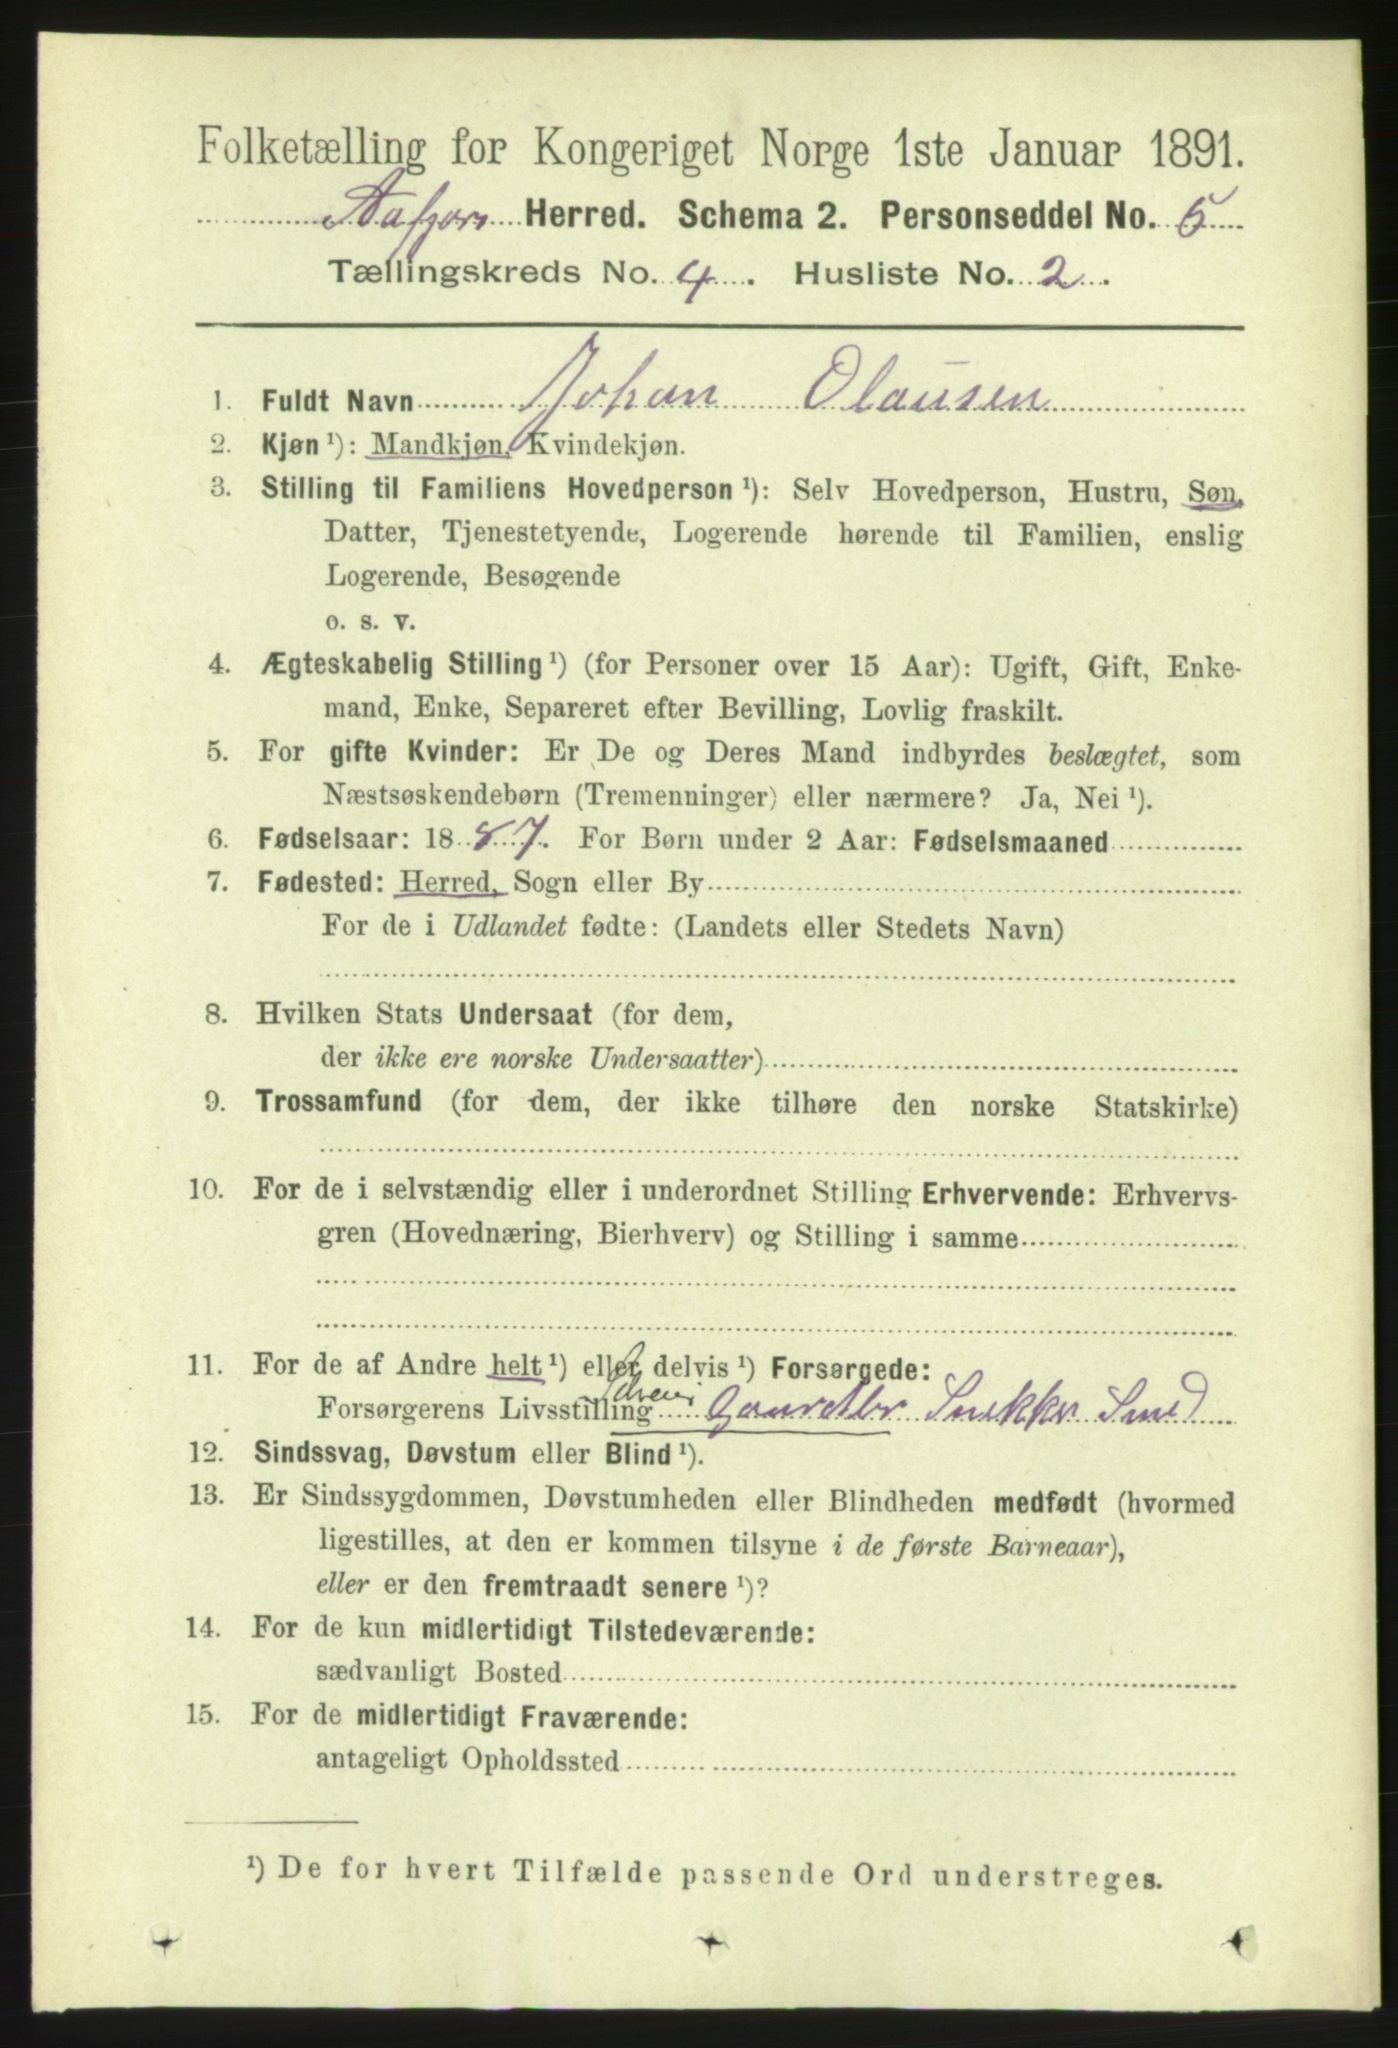 Folketælling for Kongeriget Norge 1ste Januar 1891.
Aafjord Herred. Schema 2. Personseddel No. 5
Tællingskreds No. 4. Husliste No. 2.
1. Fuldt Navn Johan Olausen
2. Kjøn ¹): Mandkjøn, Kvindekjøn.
3. Stilling til Familiens Hovedperson ¹): Selv Hovedperson, Hustru, Søn,
Datter, Tjenestetyende, Logerende hørende til Familien, enslig
Logerende, Besøgende
o. s. v.
4. Ægteskabelig Stilling ¹) (for Personer over 15 Aar): Ugift, Gift, Enke-
mand, Enke, Separeret efter Bevilling, Lovlig fraskilt.
5. For gifte Kvinder: Er De og Deres Mand indbyrdes beslægtet, som
Næstsøskendebørn (Tremenninger) eller nærmere? Ja, Nei ¹).
6. Fødselsaar: 1887. For Børn under 2 Aar: Fødselsmaaned
7. Fødested: Herred, Sogn eller By
For de i Udlandet fødte: (Landets eller Stedets Navn)
8. Hvilken Stats Undersaat (for dem,
der ikke ere norske Undersaatter)
9. Trossamfund (for dem, der ikke tilhøre den norske Statskirke)
10. For de i selvstændig eller i underordnet Stilling Erhvervende: Erhvervs-
gren (Hovednæring, Bierhverv) og Stilling i samme
11. For de af Andre helt ¹) eller delvis ¹) Forsørgede:
Forsørgerens Livsstilling Snekker Smed
12. Sindssvag, Døvstum eller Blind ¹).
13. Er Sindssygdommen, Døvstumheden eller Blindheden medfødt (hvormed
ligestilles, at den er kommen tilsyne i de første Barneaar),
eller er den fremtraadt senere ¹)?
14. For de kun midlertidigt Tilstedeværende:
sædvanligt Bosted
15. For de midlertidigt Fraværende:
antageligt Opholdssted
¹) De for hvert Tilfælde passende Ord understreges.